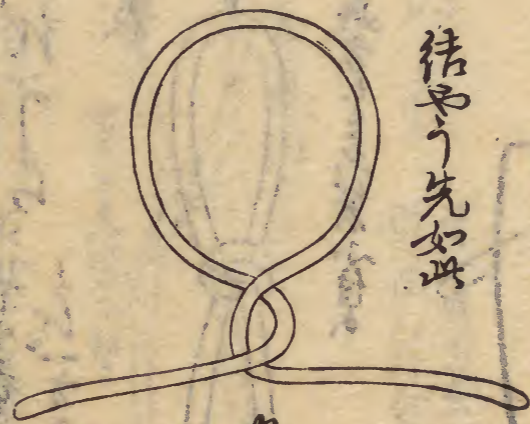 結やう先如此